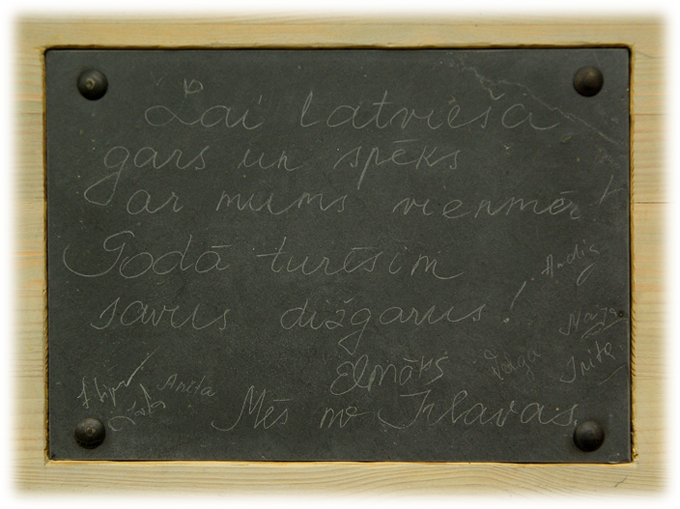 Lai latvieša
gars un spēks
ar mums vienmēr!
Godā turēsim
savus dižgarus!
Andis
Maija
Elmārs
Velga
Inita
Anita
Mēs no Irlavas